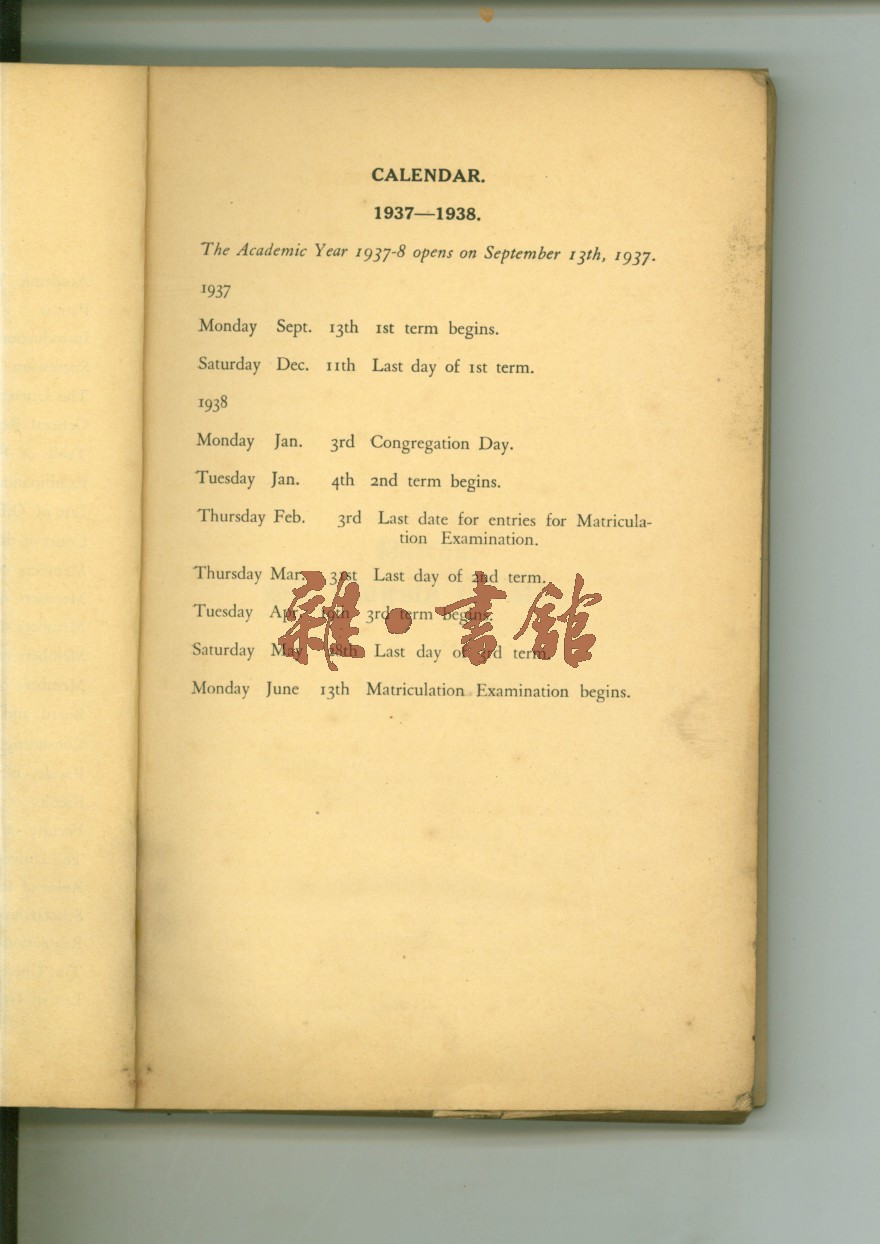 CALENDAR.
1937—1938.
The Academic Year 1937-8 opens on September 13th, 1937.
1937
Monday Sept. 13th 1st term begins.
Saturday Dec. 11th Last day of 1st term.
1938
Monday Jan. 3rd Congregation Day.
Tuesday Jan. 4th 2nd term begins.
Thursday Feb. 3rd Last date for entries for Matricula-
tion Examination.
Thursday Mar. 31st Last day of 2nd term.
Tuesday Apr. 19th 3rd term begins.
Saturday May 28th Last day of 3rd term.
Monday June 13th Matriculation Examination begins.
雜·書館